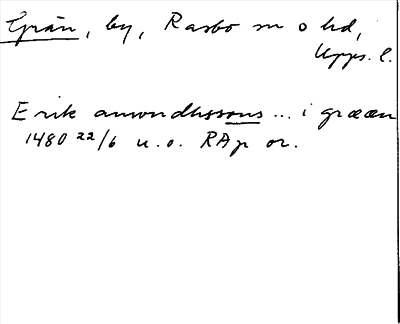 Grän, by, Rasbo sn o hd,
Upps. l.
Erik amundhssons ... i grææn
1480 22/6 u.o. RAp or.